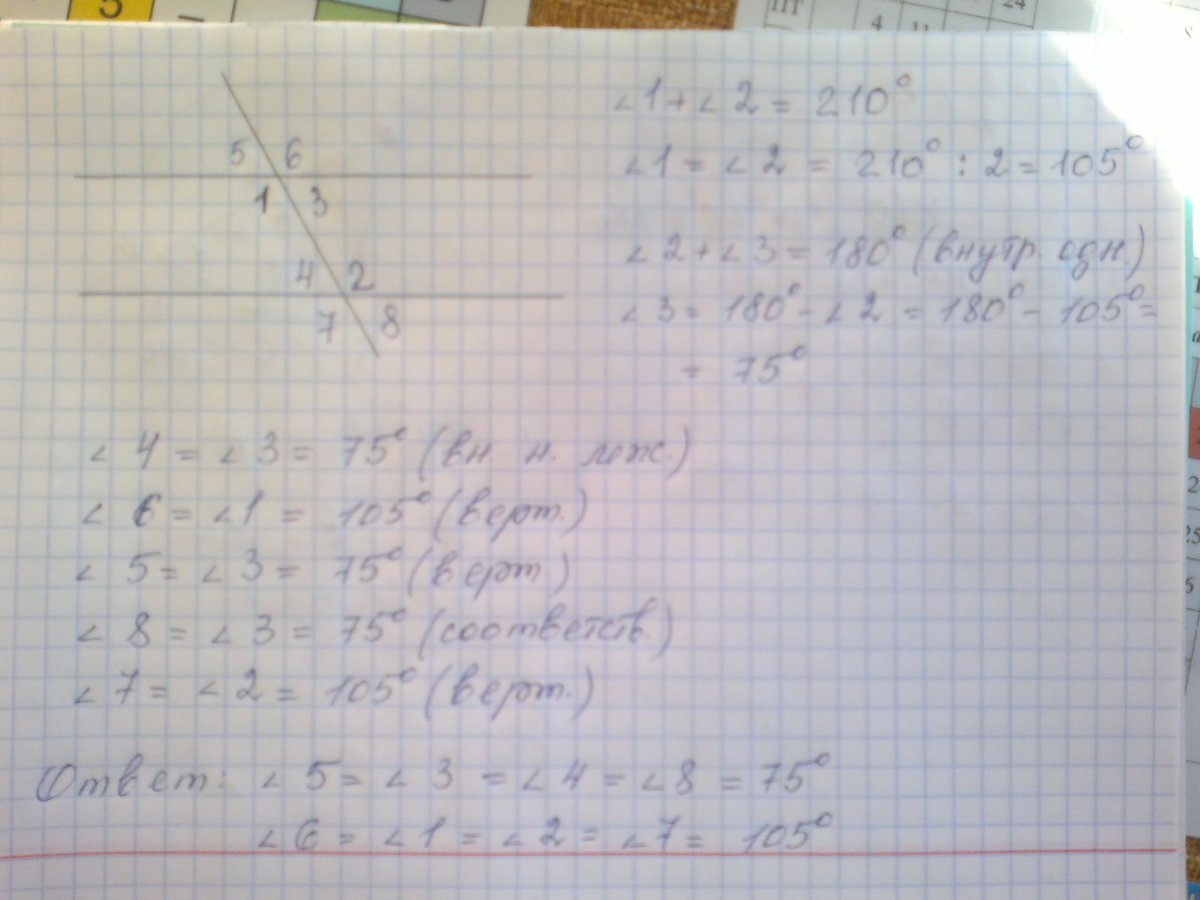 5
ПТ
4
11
24
5 6
1 3
4 2
7 8
∠1 + ∠2 = 210°
∠1 = ∠2 = 210° : 2 = 105°
∠2 + ∠3 = 180° (внутр. одн.)
∠3 = 180° - ∠2 = 180° - 105° =
= 75°
∠4 = ∠3 = 75° (вн. н. леж.)
∠6 = ∠1 = 105° (верт.)
∠5 = ∠3 = 75° (верт)
∠8 = ∠3 = 75° (соответств.)
∠7 = ∠2 = 105° (верт.)
Ответ: ∠5 = ∠3 = ∠4 = ∠8 = 75°
∠6 = ∠1 = ∠2 = ∠7 = 105°